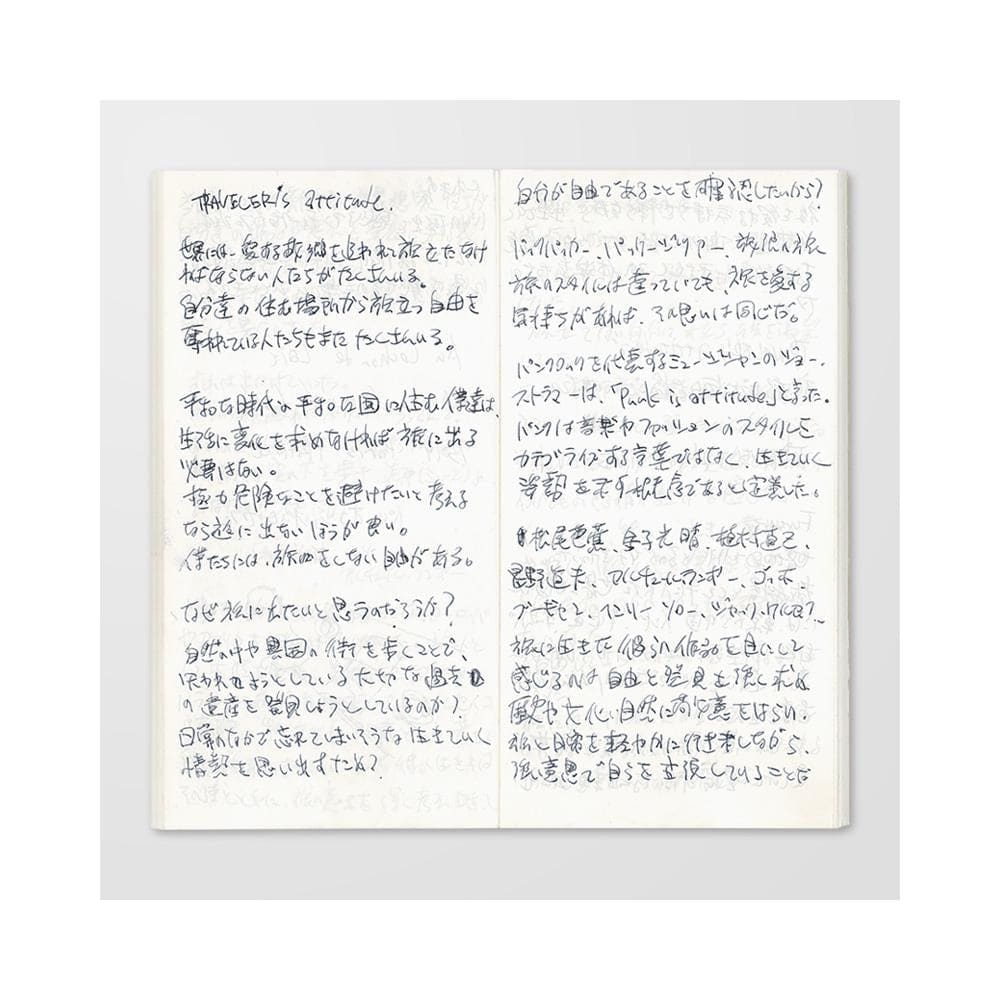 TRAVELER's attitude.
世界には、愛する故郷を追われて旅立たなけ
ればならない人たちがたくさんいる。
自分達の住む場所から旅立つ自由を
奪われている人たちもまた たくさんいる。
平和な時代の平和な国に住む僕達は、
生活に変化を求めなければ旅に出る
必要はない。
極力危険なことを避けたいと考える
なら旅に出ないほうが良い。
僕たちには、旅をしない自由がある。
なぜ旅に出たいと思うのだろうか?
自然の中や異国の街を歩くことで、
失われようとしている大切な過去
の遺産を発見しようとしているのか?
日常のなかで忘れてしまいそうな 生きていく
情熱を思い出すため?
自分が自由であることを確認したいから?
バックパッカー、パッケージツアー、放浪の旅
旅のスタイルは違っていても、旅を愛する
気持ちがあれば、その思いは同じだ。
パンクロックを代表するミュージシャンのジョー・
ストラマーは、「Punk is attitude」と言った。
パンクは音楽やファッションのスタイルを
カテゴライズする言葉ではなく、生きていく
姿勢を示す概念であると定義した。
松尾芭蕉、金子光晴、植村直己、
星野道夫、アルチュール・ランボー、ゴッホ、
ゴーギャン、ヘンリー ソロー、ジャック・ケルアック…
旅に生きた彼らの作品を目にして
感じるのは自由と発見を強く求め
歴史や文化、自然に敬意をはらい、
旅と日常を軽やかに行き来しながら、
強い意思で自らを主張していることだ